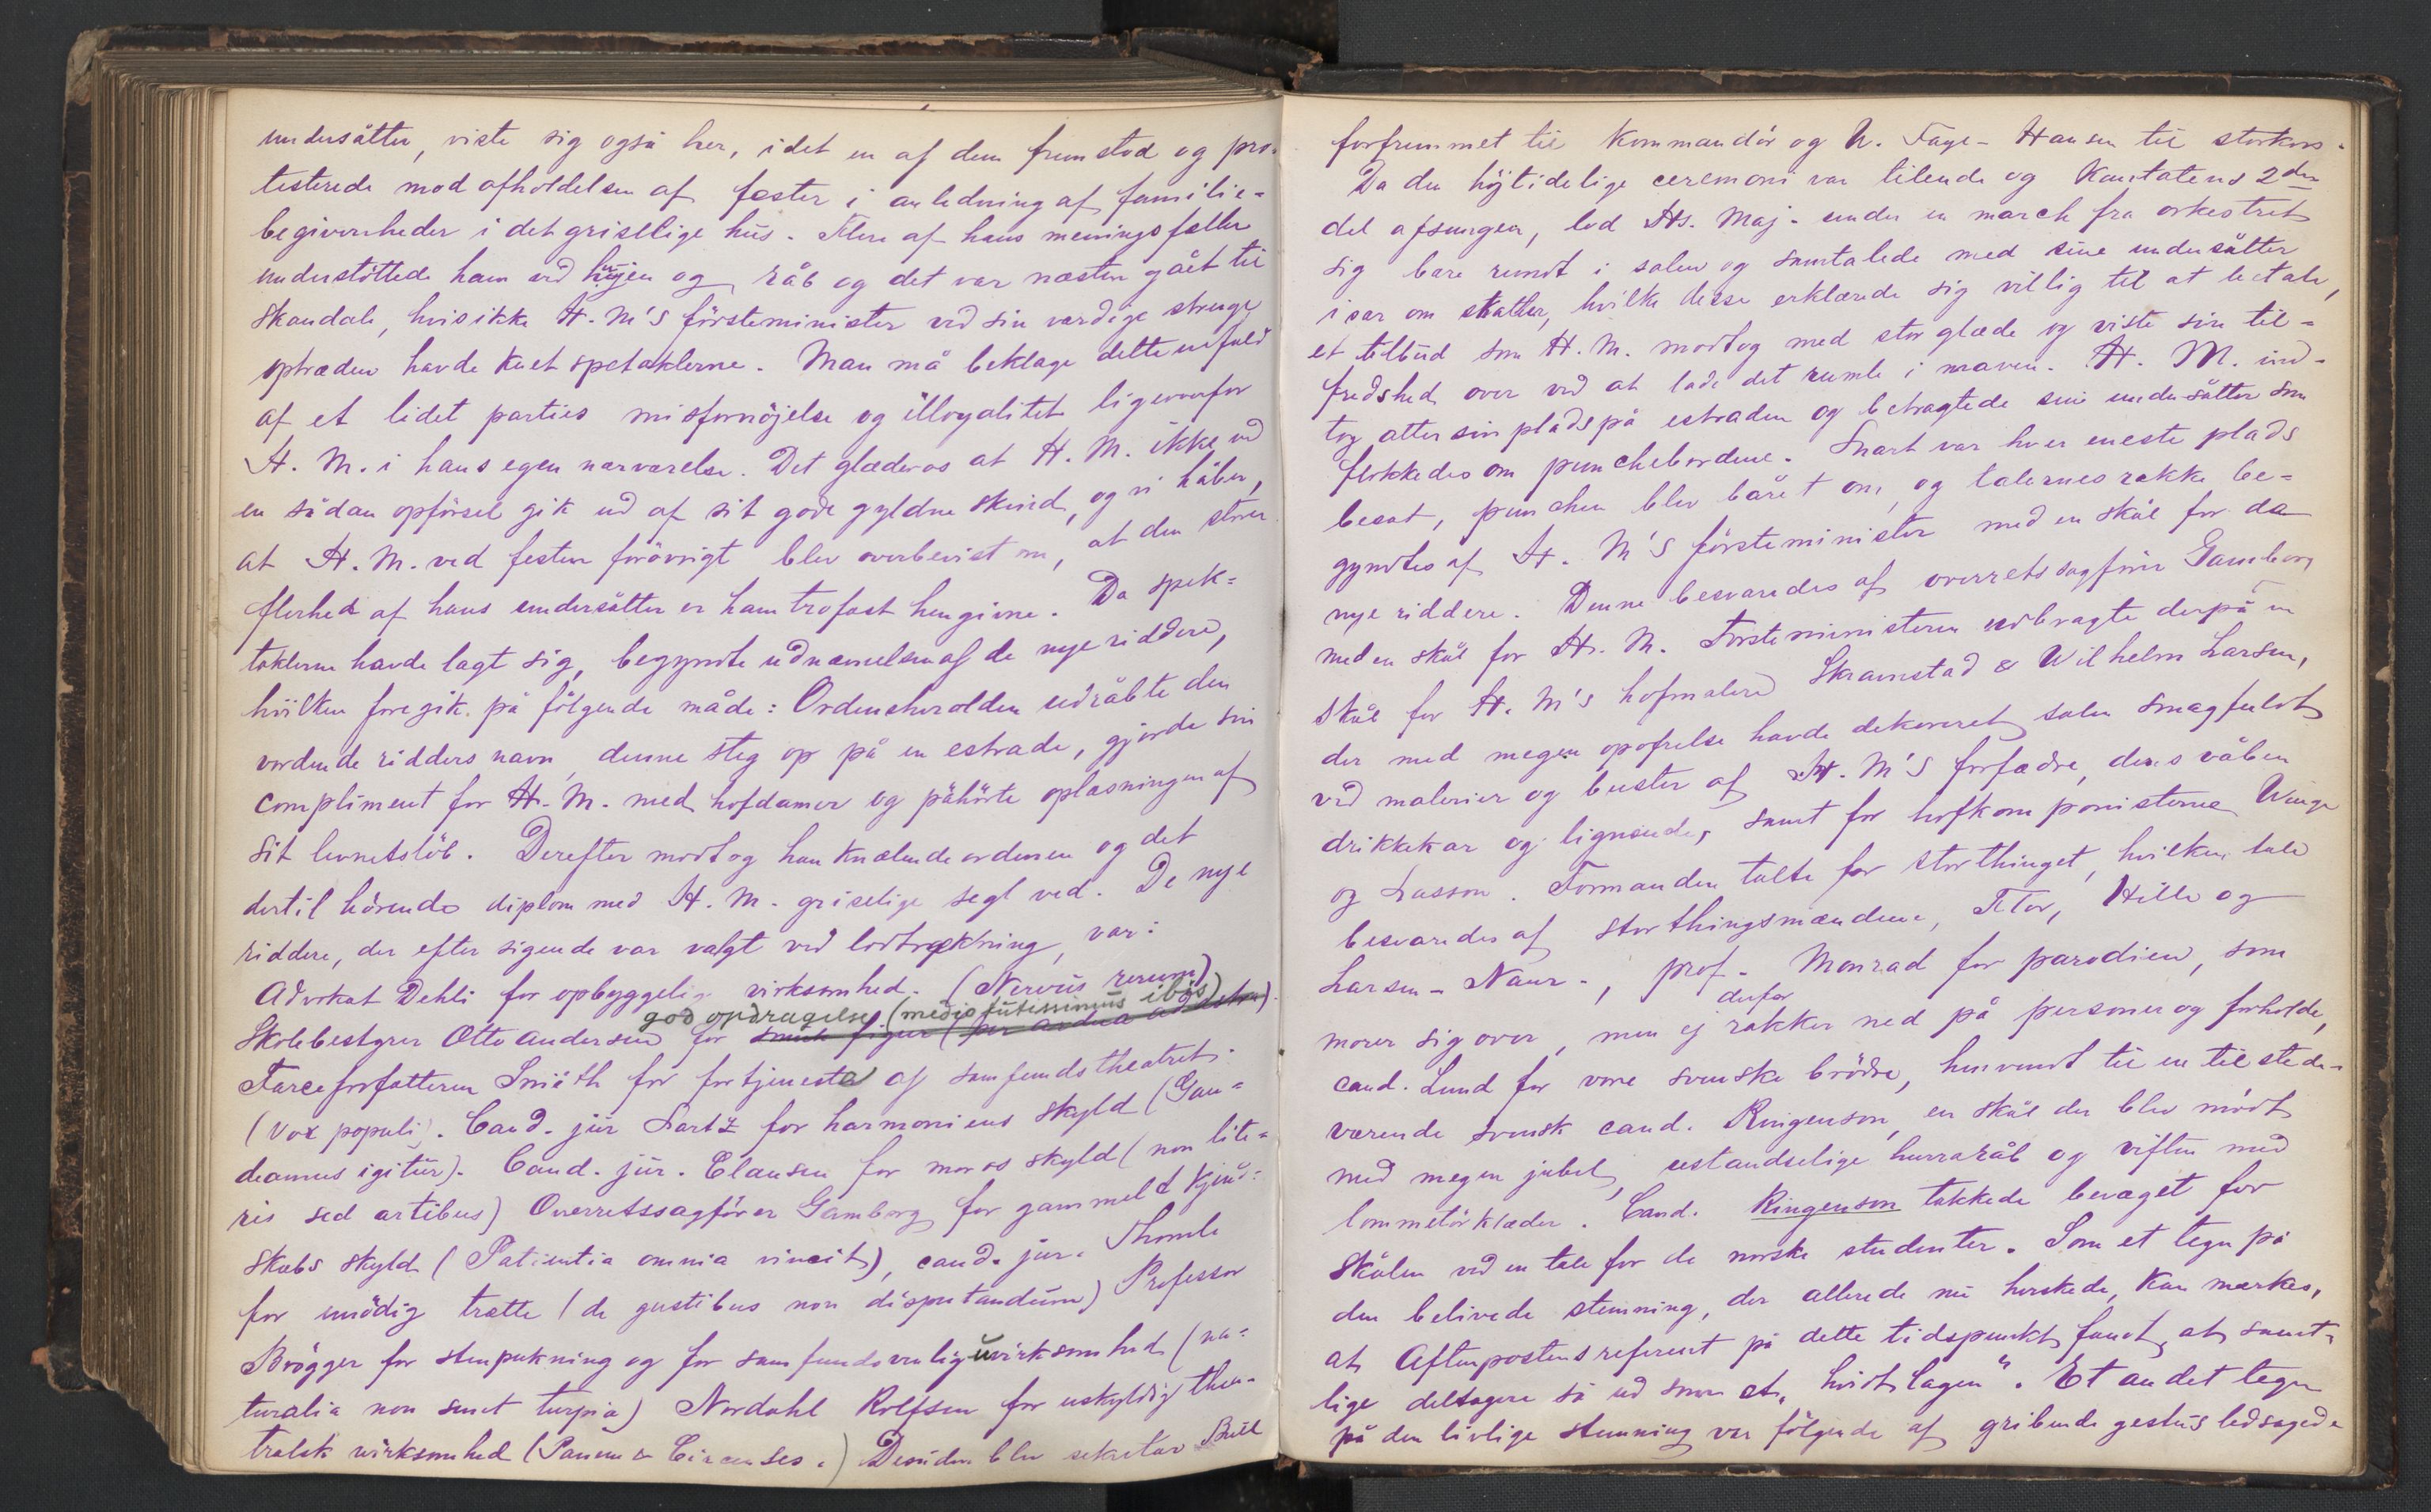 undersåtter, viste sig også her, idet en af dem fremstod og pro-
testerede mod afholdelsen af fester i anledning af familie-
begivenheder i det griselige hus. Flere af hans meningsfæller
understöttede ham ved hujen og råb og det var næsten gået til
skandale, hvis ikke H. M's förstominister ved sin værdige strenge
optræden havde kuet spetaklerne. Man må beklage dette udfald
af et lidet parties misfornöjelse og illoyalitet ligeoverfor
H. M. i hans egen nærværelse. Det glæder os at H. M. ikke ved
en sådan opförsel gik ud af sit gode gyldne skind, og vi håber,
at H. M. ved festen forövrigt blev overbevist om, at den store
flerhed af hans undersåtter er ham trofast hengivne. Da spek-
taklerne havde lagt sig, begyndte udnævnelsen af de nye riddere,
hvilken foregik på fölgende måde: Ordensherolden udråbte den
vordende ridders navn, denne steg op på en estrade, gjorde sin
compliment for H. M. med hofdamer og påhörte oplæsningen af
sit levnetslöb. Derefter modtog han knælende ordenen og det
dertil hörende diplom med H. M. griselige segl ved. De nye
riddere, der efter sigende var valgt ved lodtrækning, var:
Advokat Dehli for opbyggelig virksomhed. (Nervus rerum)
god opdragelse. (medio tutissimus ibis)
Skolebestyrer Otto Andersen for smuk figur (per ardua ad astra).
Farceforfatteren Smith for fortjeneste af samfundstheatret.
(Vox populi). Cand. jur Sartz for harmoniens skyld (Gau-
deamus igitur). Cand. jur. Clausen for moros skyld (non lite-
ris sed artibus) Overretssagförer Gamborg for gammelt kjend-
skabs skyld (Patientia omnia vincit), cand. jur. Thomle
for unödig trætte (de gustibus non disputandum) Professor
Brögger for stenpukning og for samfundsvenlig uvirksomhed (na-
turalia non sunt turpia) Nordahl Rolfsen for uskyldig thea-
tralsk virksomhed (Panem & Circenses.) Desuden blev sekretær Bull
forfremmet til Kommandör og N. Faye-Hansen til storkors.
Da den höjtidelige ceremoni var tilende og Kantatens 2den
del afsungen, lod Hs. Maj. under en march fra orkestret
sig bære rundt i salen og samtalede med sine undersåtter
især om skatter, hvilke disse erklærede sig villig til at betale,
et tilbud som H. M. modtog med stor glæde og viste sin til-
fredshed over ved at lade det rumle i maven. H. M. ind-
tog atter sin plads på estraden og betragtede sine undersåtter som
flokkedes om punchebordene. Snart var hver eneste plads
besat, punchen blev båret om, og talernes række be-
gyndtes af H. M's förstominister med en skål for de
nye riddere. Denne besvaredes af overretssagförer Gamborg
med en skål for H. M. Förstoministeren udbragte derpå en
skål for H. M's hofmalere Skramstad & Wilhelm Larsen,
der med megen opofrelse havde dekoreret salen smagfuldt
ved malerier og buster af H. M's forfædre, deres våben
drikkekar og lignende, samt for hofkomponisterne Winge
og Lasson. Formanden talte for storthinget, hvilken tale
besvaredes af storthingsmændene, Flor, Hille og
Larsen-Naur., prof. Monrad for parodien, som
morer sig over, men ej derfor rakker ned på personer og forholde,
cand. Lund for vore svenske brödre, henvendt til en tilstede-
værende svensk cand. Ringenson, en skål der blev mödt
med megen jubel, ustandselige hurraråb og viften med
lommetörklæder. Cand. Ringenson takkede bevæget for
skålen ved en tale for de norske studenter. Som et tegn på
den belivede stemning, der allerede nu herskede, kan mærkes,
at Aftenpostens referent på dette tidspunkt fandt, at samt-
lige deltagere så ud som et „hvidt lagen". Et andet tegn
på den livlige stemning var fölgende af gribende gestus ledsagede